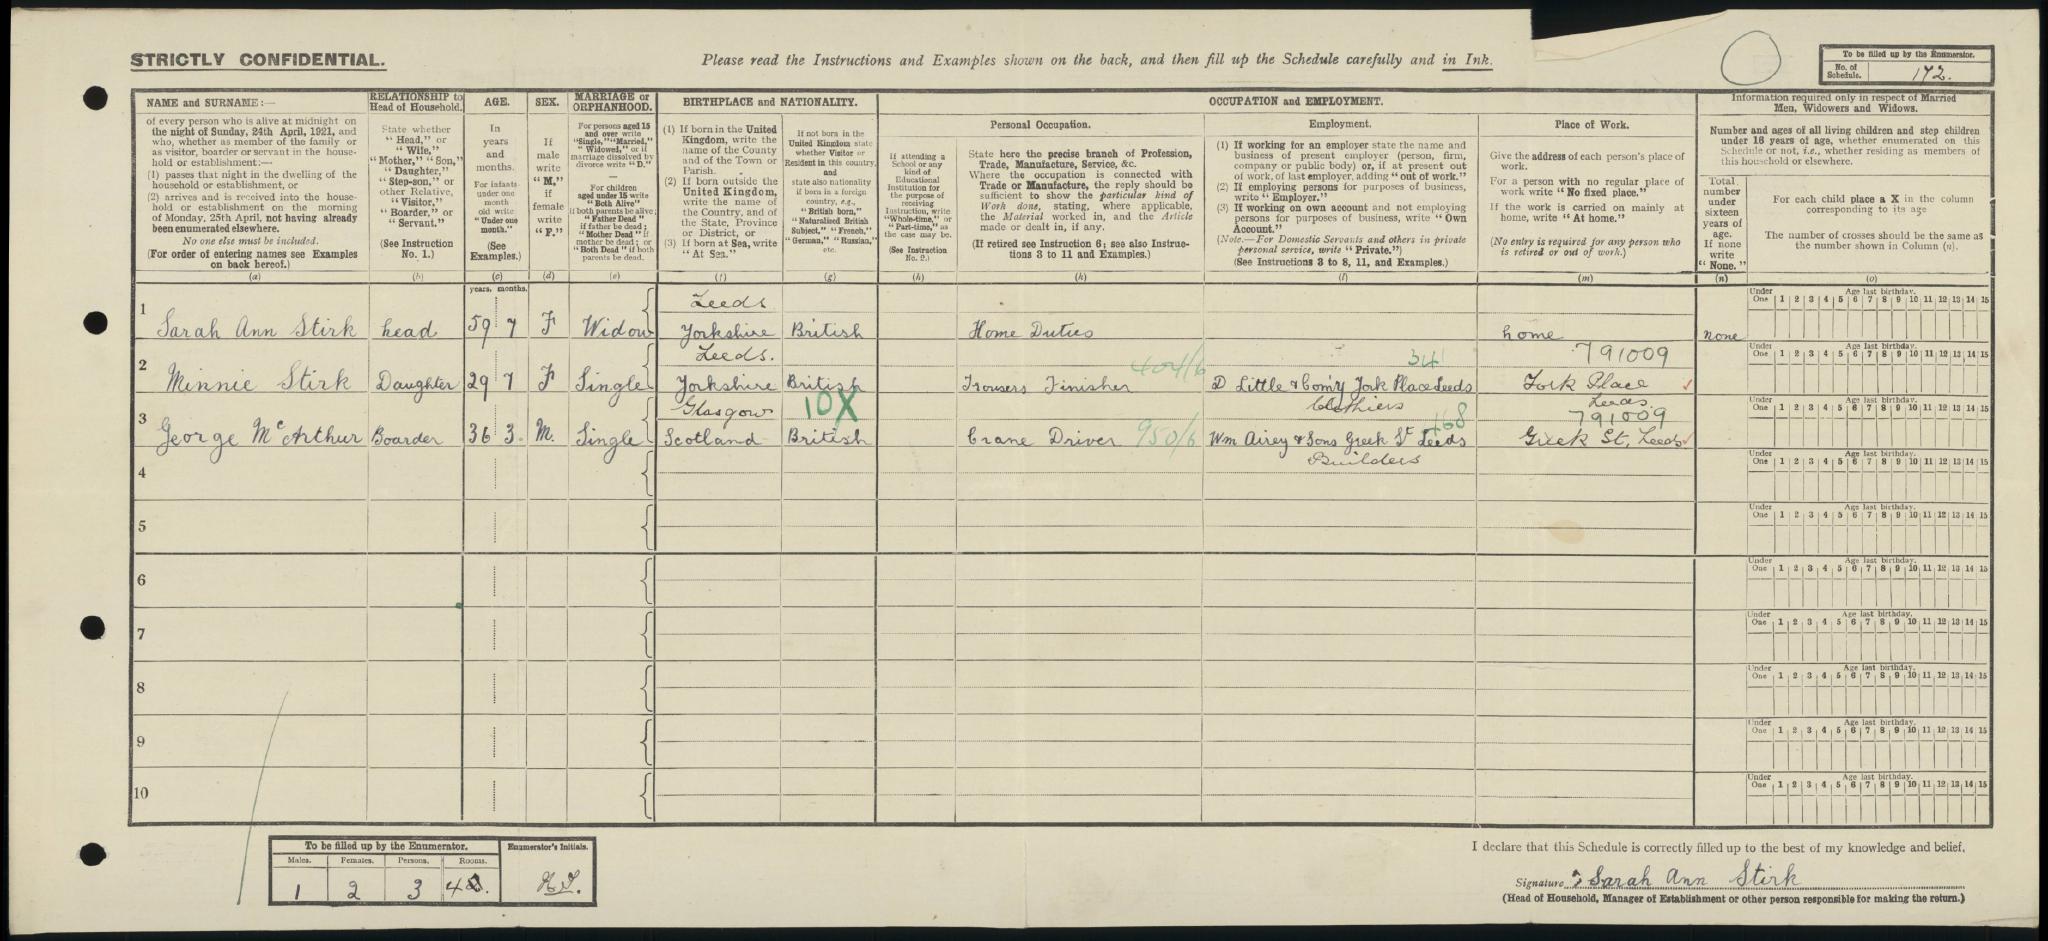 STRICTLY CONFIDENTIAL.
Please read the Instructions and Examples shown on the back, and then fill up the Schedule carefully and in Ink.
To be filled up by the Enumerator.
No. of Schedule. 172.
NAME and SURNAME:—
of every person who is alive at midnight on
the night of Sunday, 24th April, 1921, and
who, whether as member of the family or
as visitor, boarder or servant in the house-
hold or establishment:—
(1) passes that night in the dwelling of the
household or establishment, or
(2) arrives and is received into the house-
hold or establishment on the morning
of Monday, 25th April, not having already
been enumerated elsewhere.
No one else must be included.
(For order of entering names see Examples
on back hereof.)
(a)
RELATIONSHIP to
Head of Household.
State whether
"Head," or
"Wife,"
"Mother," "Son,"
"Daughter,"
"Step-son," or
other Relative,
"Visitor,"
"Boarder," or
"Servant."
(See Instruction
No. 1.)
(b)
AGE.
In
years
and
months.
For infants
under one
month
old write
"Under one
month."
(See
Examples.)
(c)
SEX.
If
male
write
"M,"
if
female
write
"F."
(d)
MARRIAGE or
ORPHANHOOD.
For persons aged 15
and over write
"Single," "Married,"
"Widowed," or if
marriage dissolved by
divorce write "D."
—
For children
aged under 15 write
"Both Alive"
if both parents be alive;
"Father Dead"
if father be dead;
"Mother Dead" if
mother be dead; or
"Both Dead" if both
parents be dead.
(e)
BIRTHPLACE and NATIONALITY.
(1) If born in the United
Kingdom, write the
name of the County
and of the Town or
Parish.
(2) If born outside the
United Kingdom,
write the name of
the Country, and of
the State, Province
or District, or
(3) If born at Sea, write
"At Sea."
(f)
If not born in the
United Kingdom state
whether Visitor or
Resident in this country,
and
state also nationality
if born in a foreign
country, e.g.,
"British born,"
"Naturalised British
Subject," "French,"
"German," "Russian,"
etc.
(g)
OCCUPATION and EMPLOYMENT.
If attending a
School or any
kind of
Educational
Institution for
the purpose of
receiving
Instruction, write
"Whole-time," or
"Part-time," as
the case may be.
(See Instruction
No. 2.)
(h)
Personal Occupation.
State here the precise branch of Profession,
Trade, Manufacture, Service, &c.
Where the occupation is connected with
Trade or Manufacture, the reply should be
sufficient to show the particular kind of
Work done, stating, where applicable,
the Material worked in, and the Article
made or dealt in, if any.
(If retired see Instruction 6; see also Instruc-
tions 3 to 11 and Examples.)
(k)
Employment.
(1) If working for an employer state the name and
business of present employer (person, firm,
company or public body) or, if at present out
of work, of last employer, adding "out of work."
(2) If employing persons for purposes of business,
write "Employer."
(3) If working on own account and not employing
persons for purposes of business, write "Own
Account."
(Note.—For Domestic Servants and others in private
personal service, write "Private.")
(See Instructions 3 to 8, 11, and Examples.)
(l)
Place of Work.
Give the address of each person's place of
work.
For a person with no regular place of
work write "No fixed place."
If the work is carried on mainly at
home, write "At home."
(No entry is required for any person who
is retired or out of work.)
(m)
Information required only in respect of Married
Men, Widowers and Widows.
Number and ages of all living children and step children
under 16 years of age, whether enumerated on this
Schedule or not, i.e., whether residing as members of
this household or elsewhere.
Total
number
under
sixteen
years of
age.
If none
write
"None."
(n)
For each child place a X in the column
corresponding to its age
The number of crosses should be the same as
the number shown in Column (n).
(o)
years. months.
1 Sarah Ann Stirk head 59 7 F Widow Leeds Yorkshire British Home Duties home none
Under One Age last birthday. 1 2 3 4 5 6 7 8 9 10 11 12 13 14 15
2 Minnie Stirk Daughter 29 7 F Single Leeds. Yorkshire British Trousers Finisher 404/6 D Little & Com'y York Place Leeds Clothiers 341 791009 York Place Leeds
Under One Age last birthday. 1 2 3 4 5 6 7 8 9 10 11 12 13 14 15
3 George McArthur Boarder 36 3. M. Single Glasgow Scotland 10X British Crane Driver 950/6 Wm Airey & Sons Greek St Leeds Builders 468 791009 Greek St, Leeds
Under One Age last birthday. 1 2 3 4 5 6 7 8 9 10 11 12 13 14 15
4
Under One Age last birthday. 1 2 3 4 5 6 7 8 9 10 11 12 13 14 15
5
Under One Age last birthday. 1 2 3 4 5 6 7 8 9 10 11 12 13 14 15
6
Under One Age last birthday. 1 2 3 4 5 6 7 8 9 10 11 12 13 14 15
7
Under One Age last birthday. 1 2 3 4 5 6 7 8 9 10 11 12 13 14 15
8
Under One Age last birthday. 1 2 3 4 5 6 7 8 9 10 11 12 13 14 15
9
Under One Age last birthday. 1 2 3 4 5 6 7 8 9 10 11 12 13 14 15
10
Under One Age last birthday. 1 2 3 4 5 6 7 8 9 10 11 12 13 14 15
To be filled up by the Enumerator.
Males. Females. Persons. Rooms.
1 2 3 4
Enumerator's Initials.
I declare that this Schedule is correctly filled up to the best of my knowledge and belief.
Signature Sarah Ann Stirk
(Head of Household, Manager of Establishment or other person responsible for making the return.)